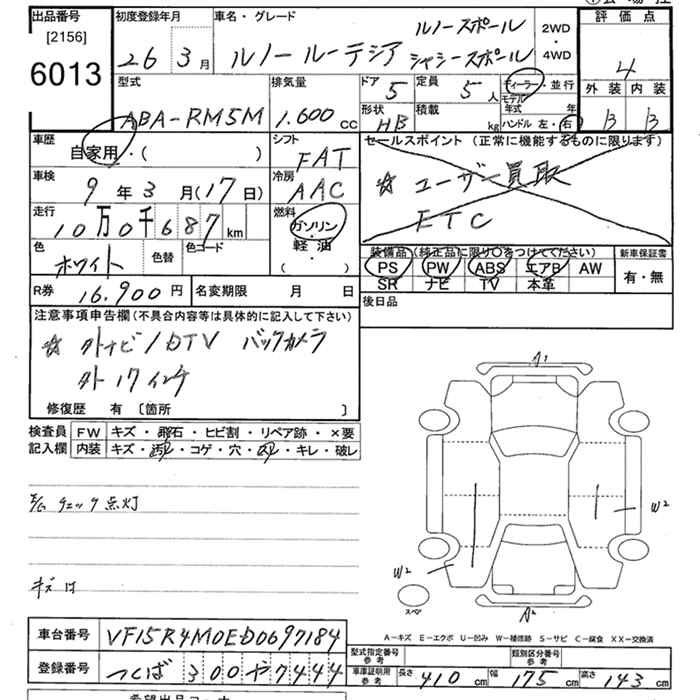 出品番号 初度登録年月 車名・グレード 評価点
[2156]
6013
26年3月
ルノー ルーテシア
ルノースポール
シャシースポール
2WD
・
4WD
4
型式 排気量 ドア 定員 ディーラー・並行
ABA-RM5M 1.600cc
5 5人
モデル年式 年
外装 内装
B B
形状 積載
HB kg ハンドル 左・右
車歴 シフト セールスポイント (正常に機能するものに限ります)
自家用・( )
FAT
☆ ユーザー買取
ETC
車検 冷房
9年3月(17日)
AAC
走行 燃料
10万0千687km
ガソリン
・
軽油
( )
色 色替 色コード
ホワイト
装備品 (純正品に限り○をつけてください) 新車保証書
PS PW ABS エアB AW
SR ナビ TV 本革
有・無
R券 16.900円 名変期限 月 日
後日品
注意事項申告欄 (不具合内容等は具体的に記入して下さい)
☆ 外ナビ/DTV バックカメラ
外17インチ
修復歴 有 〔箇所 〕
検査員 FW キズ・飛石・ヒビ割・リペア跡・×要
記入欄 内装 キズ・汚レ・コゲ・穴・凹・キレ・破レ
E/G チェック点灯
キズ け
A1
W2
W2
スペア
A2
A－キズ E－エクボ U－凹み W－補修跡 S－サビ C－腐食 XX－交換済
車台番号 VF15R4M0ED0697184
登録番号 つくば 300 や 7444
型式指定番号 参考 類別区分番号 参考
車庫証明用 参考 長さ 410cm 幅 175cm 高さ 143cm